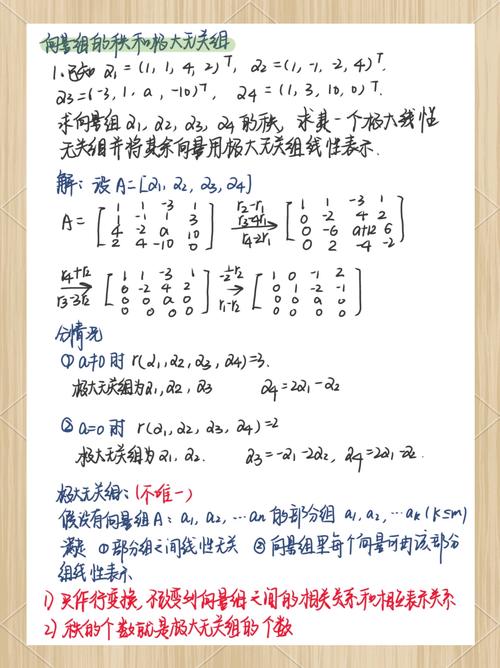 向量组的秩和极大无关组
1.已知 α1=(1,1,4,2)T, α2=(1,-1,-2,4)T.
α3=(-3,1,a,-10)T, α4=(1,3,10,0)T.
求向量组α1,α2,α3,α4的秩,求其一个极大线性
无关组并将其余向量用极大无关组线性表示.
解:设A=[α1,α2,α3,α4]
A= [1 1 -3 1; 1 -1 1 3; 4 -2 a 10; 2 4 -10 0] r2-r1 r3-4r1 r4-2r1 → [1 1 -3 1; 0 -2 4 2; 0 -6 a+12 6; 0 2 -4 -2]
r4+r2 r3-3r2 → [1 1 -3 1; 0 -2 4 2; 0 0 a 0; 0 0 0 0] -½r2 r1-r2 → [1 0 -1 2; 0 1 -2 -1; 0 0 a 0; 0 0 0 0]
分情况
① a≠0时 r(α1,α2,α3,α4)=3.
极大无关组为α1,α2,α3 α4=2α1-α2
② a=0时 r(α1,α2,α3,α4)=2
极大无关组为α1,α2. α3=-α1-2α2, α4=2α1-α2.
极大无关组:(不唯一)
假设有向量组A:a1,a2,…an的部分组 a1,a2,…ak(k≤m)
满足 ①部分组之间线性无关 ②向量组里每个向量可由该部分
组线性表示
1) 只作行变换,不改变列向量组之间的相关关系和相互表示关系
2) 秩的个数就是极大无关组的个数